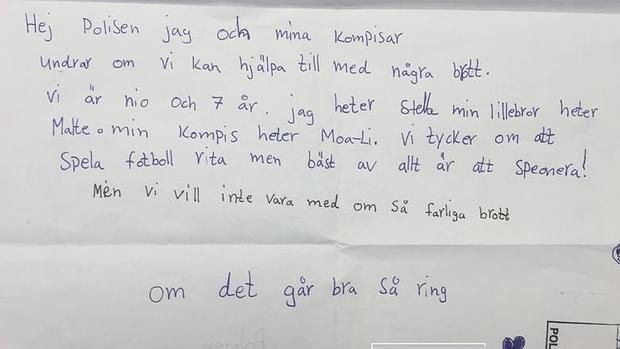 Hej Polisen jag och mina kompisar
undrar om vi kan hjälpa till med några brott.
vi är nio och 7 år. jag heter Stella min lillebror heter
Malte o min kompis heter Moa-Li. vi tycker om att
Spela fotboll rita men bäst av allt är att speonera!
Men vi vill inte vara med om så farliga brott
om det går bra så ring
POL